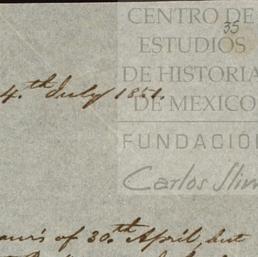 CENTRO DE
ESTUDIOS
35
DE HISTORIA
DE MEXICO
4.th July 1851.
FUNDACIÓN
Carlos Slim
of 30.th April, but